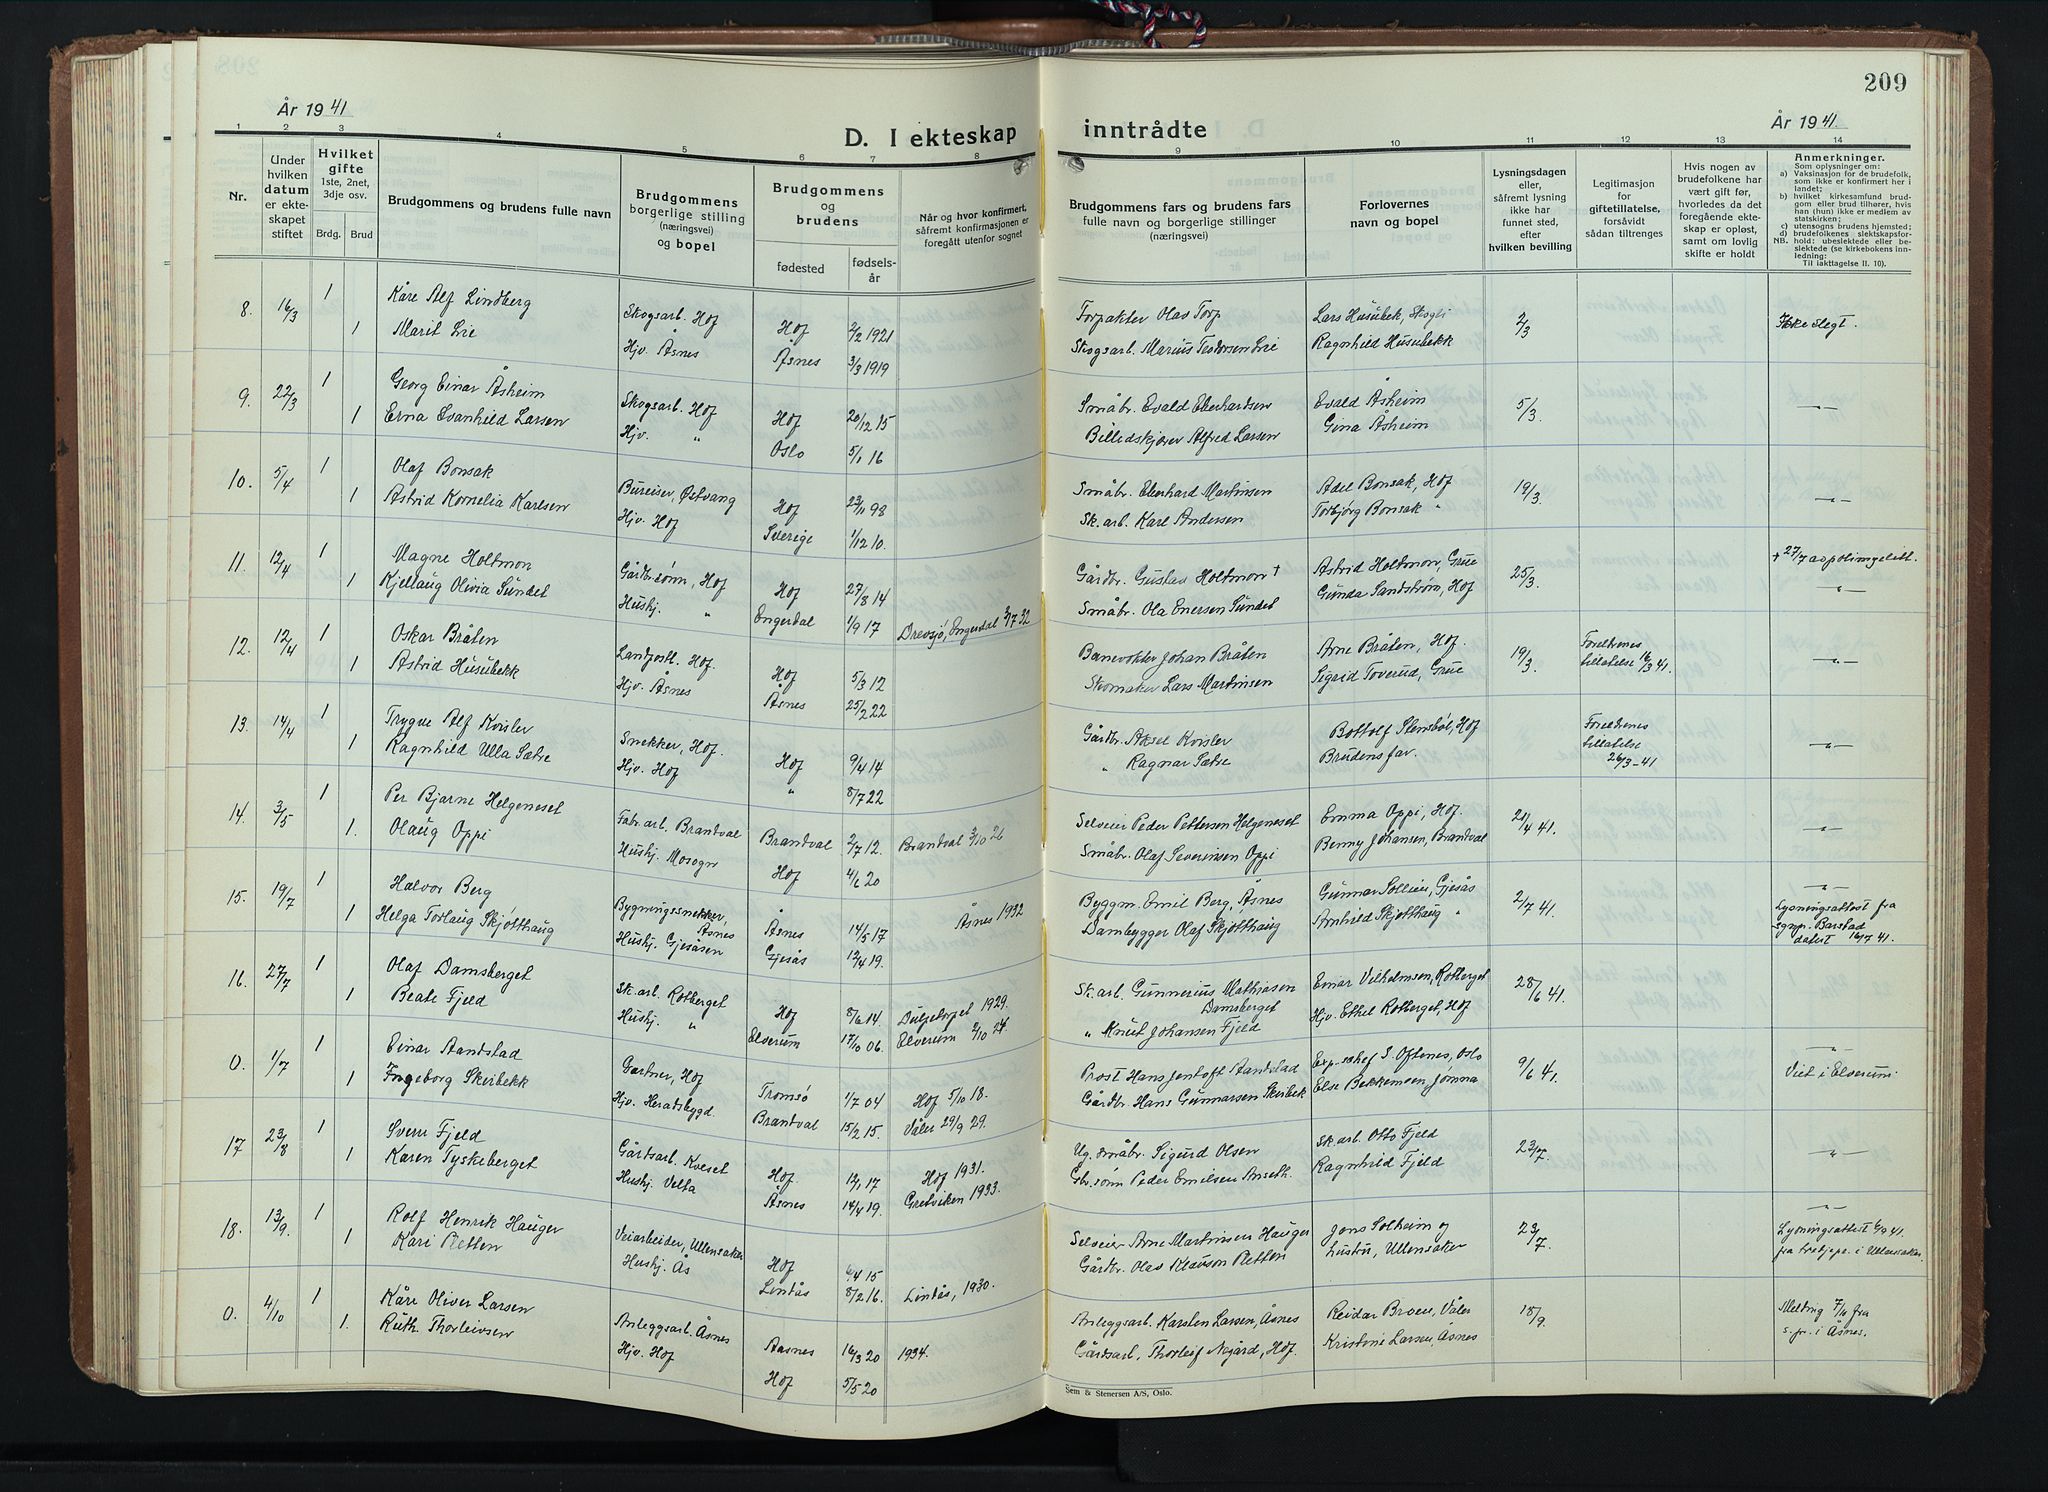 209
År 1941
År 1941.
D. I ekteskap inntrådte
1 2 3 4 5 6 7 8 9 10 11 12 13 14
Nr.
Under hvilken datum er ekteskapet stiftet
Hvilket gifte 1ste, 2net, 3dje osv.
Brdg. Brud
Brudgommens og brudens fulle navn
Brudgommens borgerlige stilling (næringsvei) og bopel
Brudgommens og brudens
fødested
fødselsår
Når og hvor konfirmert, såfremt konfirmasjonen er foregått utenfor sognet
Brudgommens fars og brudens fars fulle navn og borgerlige stillinger (næringsvei)
Forlovernes navn og bopel
Lysningsdagen eller, såfremt lysning ikke har funnet sted, efter hvilken bevilling
Legitimasjon for giftetillatelse, forsåvidt sådan tiltrenges
Hvis nogen av brudefolkene har vært gift før, hvorledes da det foregående ekteskap er opløst, samt om lovlig skifte er holdt
Anmerkninger.
Som oplysninger om:
a) Vaksinasjon for de brudefolk, som ikke er konfirmert her i landet;
b) hvilket kirkesamfund brudgom eller brud tilhører, hvis han (hun) ikke er medlem av statskirken;
c) utensogns brudens hjemsted;
d) brudefolkenes slektskapsforhold: ubeslektede eller beslektede (se kirkebokens innledning:
NB.
Til iakttagelse II. 10).
8. 16/3 1 Kåre Alf Lindberg Skogsarb. Hof Hof 2/2 1921 Forpakter Olav Torp Lars Husubek, Skogli 2/3 Ikke slegt.
1 Marit Lie Hjv. Åsnes Åsnes 3/3 1919 Skogsarb. Marius Teodorsen Lie Ragnhild Husubekk
9. 22/3 1 Georg Einar Åsheim Skogsarb. Hof Hof 20/12 15 Småbr. Evald Eberhardsen Evald Åsheim 5/3 —"—
1 Erna Svanhild Larsen Hjv. " Oslo 5/1 16 Billedskjærer Alfred Larsen Gina Åsheim
10. 5/4 1 Olaf Bonsak Bureiser, Østvang Hof 23/11 98 Småbr. Eberhard Martinsen Adel Bonsak, Hof 19/3 —"—
1 Astrid Kornelia Karlsen Hjv. Hof Sverige 1/12 10. Sk. arb. Karl Andersen Torbjørg Bonsak "
11. 12/4 1 Magne Holtmon Gårdbr.sønn, Hof Hof 27/8 14 Gårdbr. Gustav Holtmon † Astrid Holtmon, Grue 25/3. + 27/7 av poliomyelitt.
1 Kjellaug Olivia Sundet Hushj. " Engerdal 1/9 17 Drevsjø, Engerdal 3/7 32 Småbr. Ola Enersen Sundet Gunda Sandstrøm, Hof —"—
12. 12/4 1 Oskar Bråten Landpostb. Hof. Hof 5/3 12 Banevokter Johan Bråten Arne Bråten, Hof. 19/3 Foreldrenes tillatelse 16/3 41. —"—
1 Astrid Husubekk Hjv. Åsnes Åsnes 25/2 22 Skomaker Lars Martinsen Sigrid Toverud, Grue
13. 14/4 1 Trygve Alf Kvisler Snekker, Hof. Hof 9/4 14 Gårdbr. Aksel Kvisler Bottolf Stensbøl, Hof Foreldrenes tillatelse 26/3-41 —"—
1 Ragnhild Ulla Sætre Hjv. Hof " 8/7 22 " Ragnar Sætre Brudens far.
14. 3/5 1 Per Bjarne Helgeneset Fabr. arb. Brandval Brandval 2/7 12. Brandval 3/10 26 Selveier Peder Pettersen Helgeneset Emma Oppi, Hof. 21/4 41. —"—
1. Olaug Oppi Hushj. Mosogn Hof 4/6 20 Småbr. Olaf Severinsen Oppi Benny Johansen, Brandval
15. 19/7 1 Halvor Berg Bygningssnekker, Åsnes Åsnes 14/5 17 Åsnes 1932 Byggm. Emil Berg, Åsnes Gunnar Sollien, Gjesås 2/7 41. —"—
1 Helga Torlaug Skjøtthaug Hushj. Gjesåsen Gjesås 12/4 19. Dambygger Olaf Skjøtthaug Arnhild Skjøtthaug " Lysningsattest fra sgnpr. Barstad datert 16/7 41.
16. 27/7 1 Olaf Damsberget Sk. arb. Rotberget Hof 8/6 14. Dulpetorpet 1929. Sk. arb. Gunnerius Mathiasen Damsberget Einar Vilhelmsen, Rotberget 28/6 41.
1 Beate Fjeld Hushj. " Elverum 17/10 06. Elverum 2/10 24. " Knut Johansen Fjeld Hjv. Ethel Rotberget, Hof —"—
0. 1/7 1 Einar Aandstad Gartner, Hof Tromsø 1/7 04 Hof 5/10 18. Prost Hans Jentoft Aandstad Exp.sjef S. Oftenes, Oslo 9/6 41. Viet i Elverum.
1 Ingeborg Skirbekk Hjv. Heradsbygd. Brandval 15/2 15. Våler 29/9 29. Gårdbr. Hans Gunnarsen Skirbek Else Bekkemoen, Jømna
17 23/8 1 Sverre Fjeld Gårdsarb. Kveset Hof. 12/1 17 Hof 1931. Ug. småbr. Sigurd Olsen Sk. arb. Otto Fjeld 23/7. —"—
1 Karen Tyskeberget Hushj. Velta Åsnes 14/4 19. Gretviken 1933. Gbr. sønn Peder Emilsen Anseth. Ragnhild Fjeld
18. 13/9 1 Rolf Henrik Hauger Veiarbeider, Ullensaker Hof 6/4 15 Selveier Arne Martinsen Hauger Jons Solheim og 23/7. —"—
1 Kari Retten Hushj. Ås Lindås 8/2 16. Lindås, 1930. Gårdbr. Olav Klavson Retten hustru, Ullensaker Lysningsattest 6/9 41. fra i Ullensaker
0. 4/10 1 Kåre Oliver Larsen Anleggsarb. Åsnes Aasnes 16/3 20 1934. Anleggsarb. Karsten Larsen, Åsnes Reidar Broen, Våler 18/9. Melding 7/11 fra s.pr. i Åsnes.
1. Ruth Thorleivsen Hjv. Hof Hof 5/5 20 Gårdsarb. Thorleif Nygård, Hof. Kristine Larsen, Åsnes
Sem & Stenersen A/S, Oslo.